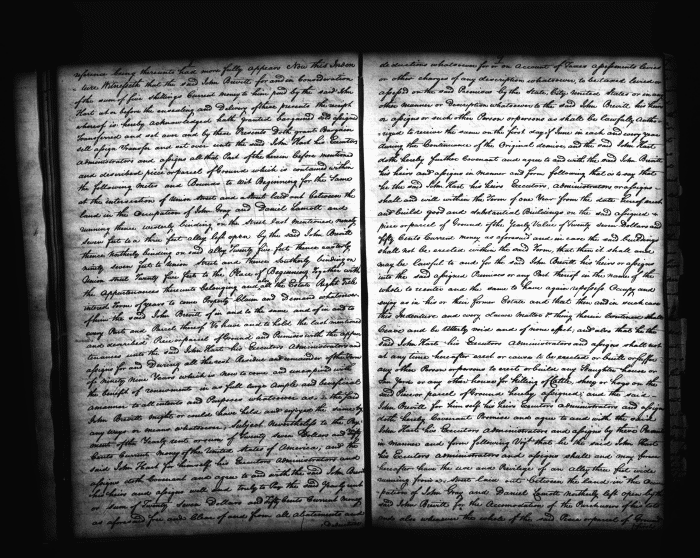 reference being thereunto had more fully appears Now this Inden
ture Witnesseth that the said John Brevitt for and in Consideration
of the sum of five shillings Current money to him paid by the said John
Hart at or before the Ensealing and Delivery of these presents the receipt
whereof is hereby acknowledged hath granted bargained sold assigned
transferred and set over and by these Presents Doth grant Bargain
sell assign Transfer and set over unto the said John Hart his Executors
Administrators and assigns all that Part of the herein before mentioned
and described piece or parcel of Ground which is contained within
the following Metes and Bounds to wit Beginning for the Same
at the intersection of Union street and a street laid out between the
land in the Occupation of John Gray and Daniel Lamott and
running thence westerly binding on the street last mentioned ninety
seven feet to a three feet alley left open by the said John Brevitt
thence Northerly binding on said alley Twenty five feet thence easterly
ninety seven feet to Union street and thence Southerly binding on
Union street Twenty five feet to the Place of Beginning Together with
the Appurtenances thereunto belonging and all the Estate Right Title
interest Term of years to come Property Claim and Demand whatsoever
of him the said John Brevitt of in and to the same and of in and to
every Part and Parcel thereof To have and to hold the last mentioned
and described Piece or parcel of Ground and Premises with the appur
tenances unto the said John Hart his Executors Administrators and
assigns for and During all the rest Residue and remainder of the Term
of ninety Nine Years which is now to come and unexpired with
the benefit of renewment in as full large Ample and beneficial
a manner to all intents and Purposes whatsoever as the said
John Brevitt might or could have held and enjoyed the same by
any ways or means whatsoever, Subject Nevertheless to the Pay
ment of the Yearly rent or sum of Twenty seven Dollars and Fifty
Cents Current money of the United States of America, and the
said John Hart for himself his Executors Administrators and
assigns doth Covenant and agree to and with the said John Brevitt
his heirs and assigns well and truly to Pay the said Yearly rent
or sum of Twenty seven Dollars and Fifty Cents Current money
as aforesaid free and Clear of and from all abatements and
deductions whatsoever for or on account of Taxes assessments levies
or other charges of any description whatsoever, to be taxed levied or
assessed on the said Premises by the State City United States or in any
other manner or Description whatsoever to the said John Brevitt his heirs
or assigns or such other Person or persons as shall be lawfully Autho
rized to receive the same on the first day of June in each and every year
during the Continuance of the Original demise, and the said John Hart
doth hereby further Covenant and agree to and with the said John Brevitt
his heirs and assigns in manner and form following that is to say that
he the said John Hart his heirs Executors, Administrators or assigns
shall and will within the Term of one Year from the date hereof erect
and build good and substantial Buildings on the said assigned
piece or parcel of Ground of the Yearly Value of Twenty seven Dollars and
fifty Cents Current money as aforesaid and in case the said buildings
shall not be erected within the said Term, that then it shall and
may be lawful to and for the said John Brevitt his heirs or assigns
into the said assigned Premises or any Part thereof in the name of the
whole to reenter and the same to have again repossess Occupy and
enjoy as in his or their former Estate and that then and in such case
this Indenture and every Clause Matter & thing therein Contained shall
Cease and be utterly void and of none effect, and also that he the
said John Hart his Executors Administrators and assigns shall not
at any time hereafter erect or cause to be erected or built or suffer
any other Person or persons to erect or build any Slaughter house or
Tan Yard or any other house for Killing of Cattle, sheep or hogs on the
said Piece or parcel of Ground hereby assigned; and the said
John Brevitt for himself his heirs Executors Administrators and assigns
doth hereby Covenant Promise and agree to and with the said
John Hart his Executors Administrators and assigns by these Presents
in Manner and form following Viz that he the said John Hart
his Executors Administrators and assigns shall and may forever
hereafter have the use and Privilege of an alley three feet wide
running from a street laid out between the land in the Occu
pation of John Gray and Daniel Lamott Northerly left open by the
said John Brevitt for the Accomodation of the Purchasers of his lots
and also whenever the whole of the said Piece or parcel of Ground